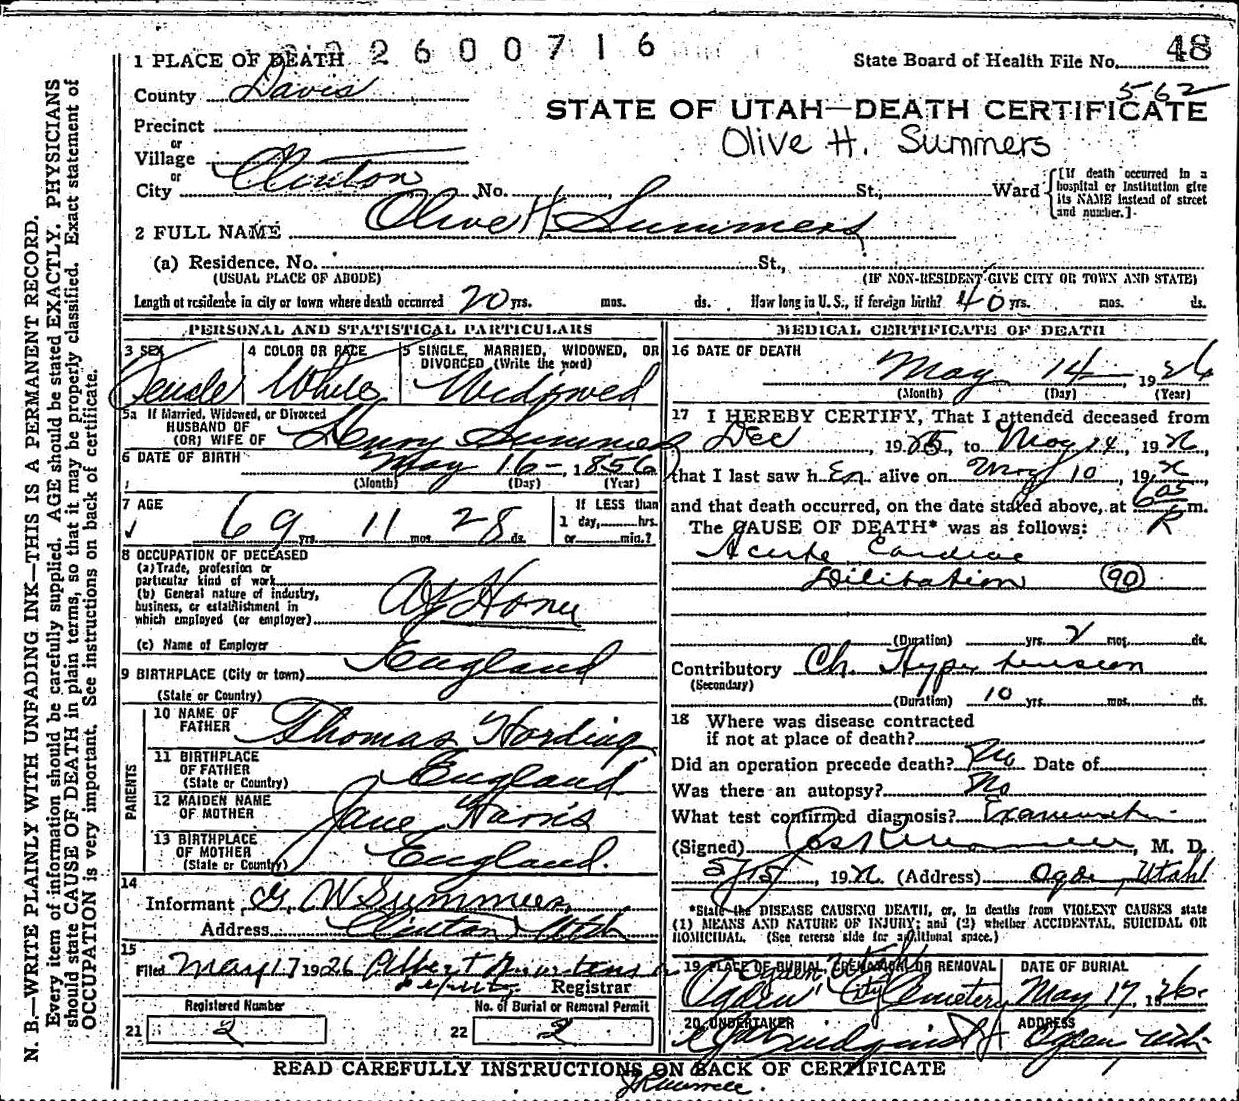 2600716
48
1 PLACE OF DEATH
State Board of Health File No.
562
County Davis
STATE OF UTAH—DEATH CERTIFICATE
Precinct
Olive H. Summers
or
Village
or
City Clinton No. St., Ward
[If death occurred in a hospital or institution give its NAME instead of street and number.]
2 FULL NAME Olive H. Summers
(a) Residence. No. St.,
(USUAL PLACE OF ABODE) (IF NON-RESIDENT GIVE CITY OR TOWN AND STATE)
Length of residence in city or town where death occurred 20 yrs. mos. ds. How long in U.S., if foreign birth? 40 yrs. mos. ds.
PERSONAL AND STATISTICAL PARTICULARS
3 SEX 4 COLOR OR RACE 5 SINGLE, MARRIED, WIDOWED, OR
DIVORCED (Write the word)
Female White Widowed
5a If Married, Widowed, or Divorced
HUSBAND OF
(OR) WIFE OF Henry Summers
6 DATE OF BIRTH May 16-, 1856
(Month) (Day) (Year)
7 AGE If LESS than
69 yrs. 11 mos. 28 ds. 1 day, hrs.
or min.?
8 OCCUPATION OF DECEASED
(a) Trade, profession or
particular kind of work
(b) General nature of industry,
business, or establishment in
which employed (or employer) At Home
(c) Name of Employer
9 BIRTHPLACE (City or town) England
(State or Country)
PARENTS
10 NAME OF
FATHER Thomas Harding
11 BIRTHPLACE
OF FATHER England
(State or Country)
12 MAIDEN NAME
OF MOTHER Jane Harris
13 BIRTHPLACE
OF MOTHER England.
(State or Country)
14
Informant G. W. Summers
Address Clinton Utah
15
Filed May 17 1926 Albert
deputy Registrar
Registered Number No. of Burial or Removal Permit
21 2 22 2
MEDICAL CERTIFICATE OF DEATH
16 DATE OF DEATH
May 14 1926
(Month) (Day) (Year)
17 I HEREBY CERTIFY, That I attended deceased from
Dec, 1925, to May 14 1926
that I last saw her alive on May 10, 19
and that death occurred, on the date stated above, at 6 05 P m.
The CAUSE OF DEATH* was as follows:
Acute Cardiac
Dilitation 90
(Duration) yrs. 2 mos. ds.
Contributory Ch. Hypertension
(Secondary)
(Duration) 10 yrs. mos. ds.
18 Where was disease contracted
if not at place of death?
Did an operation precede death? No Date of
Was there an autopsy? No
What test confirmed diagnosis? Examination
(Signed) M. D.
5/15, 19 (Address) Ogden, Utah
*State the DISEASE CAUSING DEATH, or, in deaths from VIOLENT CAUSES state
(1) MEANS AND NATURE OF INJURY; and (2) whether ACCIDENTAL, SUICIDAL OR
HOMICIDAL. (See reverse side for additional space.)
19 PLACE OF BURIAL, CREMATION, OR REMOVAL DATE OF BURIAL
Ogden Utah
Ogden City Cemetery May 17, 1926.
20 UNDERTAKER ADDRESS
Ogden Utah
READ CAREFULLY INSTRUCTIONS ON BACK OF CERTIFICATE
N. B.—WRITE PLAINLY WITH UNFADING INK—THIS IS A PERMANENT RECORD.
Every item of information should be carefully supplied. AGE should be stated EXACTLY. PHYSICIANS
should state CAUSE OF DEATH in plain terms, so that it may be properly classified. Exact statement of
OCCUPATION is very important. See instructions on back of certificate.